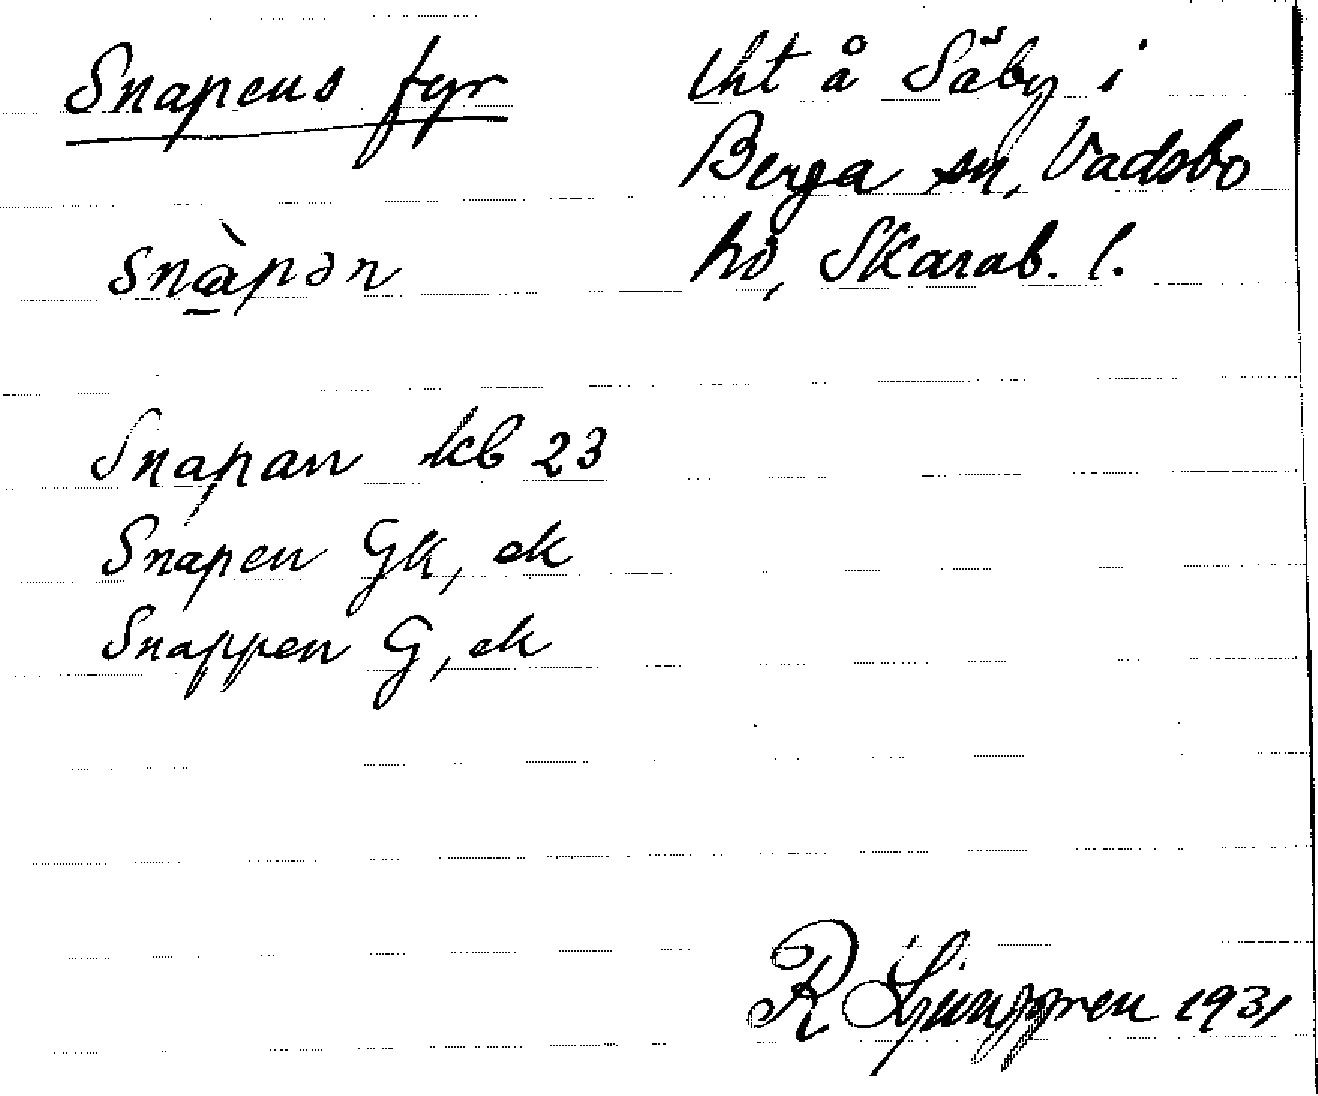 Snapens fyr
snàpən
Snapan kb 23
Snapen Gk, ek
Snappen G, ek
tht å Säby i
Berga sn, Vadsbo
hd, Skarab. l.
R Ljunggren 1931